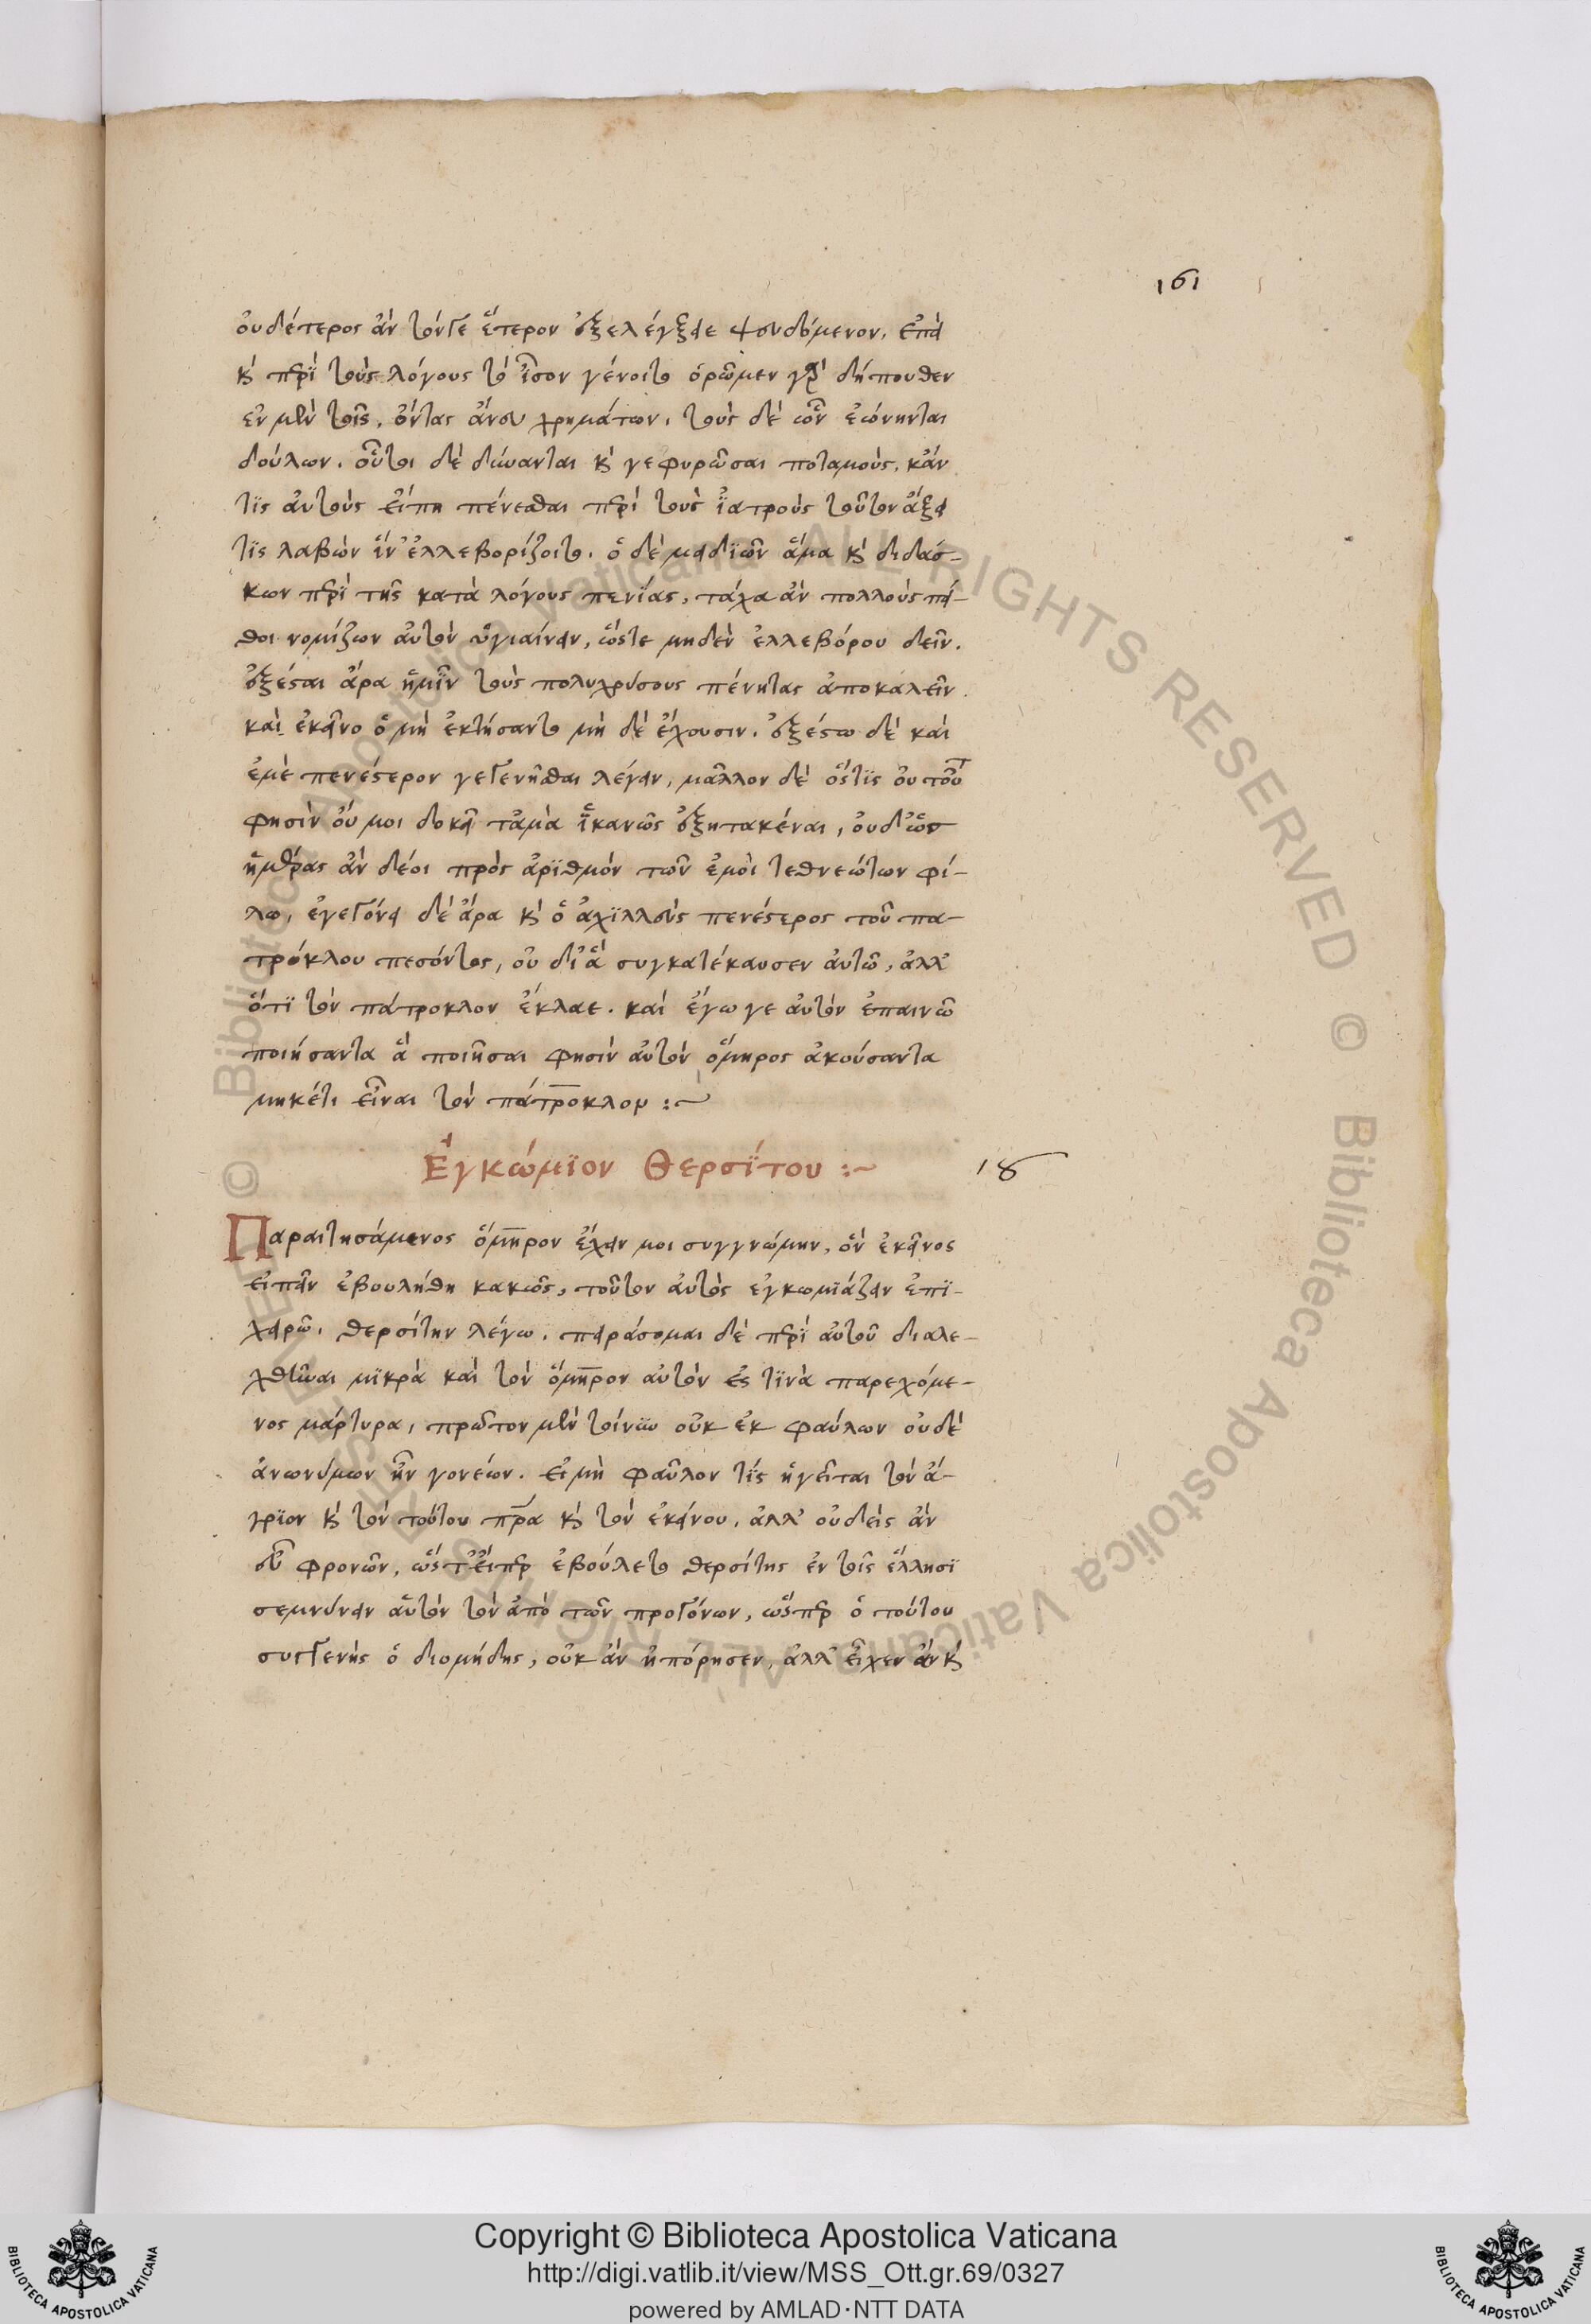 161
οὐδέτερος ἂν τόνγε ἕτερον ἐξελέγξειε ψευδόμενον. ἐπεὶ
κ̀ περὶ τοὺς λόγους τὸ ἶσον γένοιτο ὁρῶμεν γὰρ δήπουθεν
ἐν μὲν τοῖς, ὄντας ἄνευ χρημάτων. τοὺς δὲ ὧν ἐώνηνται
δούλων. οὗτοι δὲ δύνανται κ̀ γεφυρῶσαι ποταμούς. κἄν
τϊς αὐτοὺς εἴπη πένεσθαι περὶ τοὺς ἰατροὺς τοῦτον ἄξει
τϊς λαβὼν ἵν' ἐλλεβορίζοιτο. ὁ δὲ μειδϊῶν ἅμα κ̀ διδάσ-
κων περὶ τῆς κατὰ λόγους πενίας, τάχα ἂν πολλοὺς πεί-
θοι νομίζων αὐτὸν ὑγιαίνειν, ὥστε μηδὲν ἐλλεβόρου δεῖν.
ἐξέσται ἄρα ἡμῖν τοὺς πολυχρύσους πένητας ἀποκαλεῖν.
καὶ ἐκεῖνο ὃ μὴ ἐκτήσαντο μὴ δὲ ἔχουσιν. ἐξέστω δὲ καὶ
ἐμὲ πενέστερον γεγενῆσθαι λέγειν, μᾶλλον δὲ ὅστϊς οὐ τοῦτ
φησὶν οὔ μοι δοκεῖ τἀμὰ ἱκανῶς ἐξητακέναι, οὐδ' ὧς
ἡμέρας ἂν δέοι πρὸς ἀρϊθμὸν τῶν ἐμοὶ τεθνεώτων φί-
λω, ἐγεγόνει δὲ ἄρα κ̀ ὁ ἀχϊλλεὺς πενέστερος τοῦ πα-
τρόκλου πεσόντος, οὐ δι' ἃ συγκατέκαυσεν αὐτῶ, ἀλλ'
ὅτϊ τὸν πάτροκλον ἔκλαε. καὶ ἔγωγε αὐτὸν ἐπαινῶ
ποιήσαντα ἃ ποιῆσαι φησὶν αὐτὸν ὅμηρος ἀκούσαντα
μηκέτι εἶναι τὸν πάτροκλον :~
Ἐγκώμϊον Θερσΐτου :~ 18
Παραιτησάμενος ὅμηρον ἔχειν μοι συγγνώμην, ὃν ἐκεῖνος
εἰπεῖν ἐβουλήθη κακῶς, τοῦτον αὐτὸς ἐγκωμϊάζειν ἐπϊ-
χειρῶ. θερσίτην λέγω. πειράσομαι δὲ περὶ αὐτοῦ διαλε-
χθῆναι μϊκρὰ καὶ τὸν ὅμηρον αὐτὸν ἔς τϊνὰ παρεχόμε-
νος μάρτυρα, πρῶτον μὲν τοίνϋν οὐκ ἐκ φαύλων οὐδὲ
ἀνωνύμων ἦν γονέων. εἰ μὴ φαῦλον τΐς ἡγεῖται τὸν ἄ-
γρϊον κ̀ τὸν τούτου πρ̅α κ̀ τὸν ἐκείνου. ἀλλ' οὐδεὶς ἂν
εὖ φρονῶν, ὥστ' εἴπερ ἐβούλετο θερσίτης ἐν τοῖς ἕλλησϊ
σεμνύνειν αὑτὸν τὸν ἀπὸ τῶν προγόνων, ὥσπερ ὁ τούτου
συγγενὴς ὁ διομήδης, οὐκ ἂν ἠπόρησεν, ἀλλ' εἶχεν ἂν κ̀
Copyright © Biblioteca Apostolica Vaticana
http://digi.vatlib.it/view/MSS_Ott.gr.69/0327
powered by AMLAD·NTT DATA